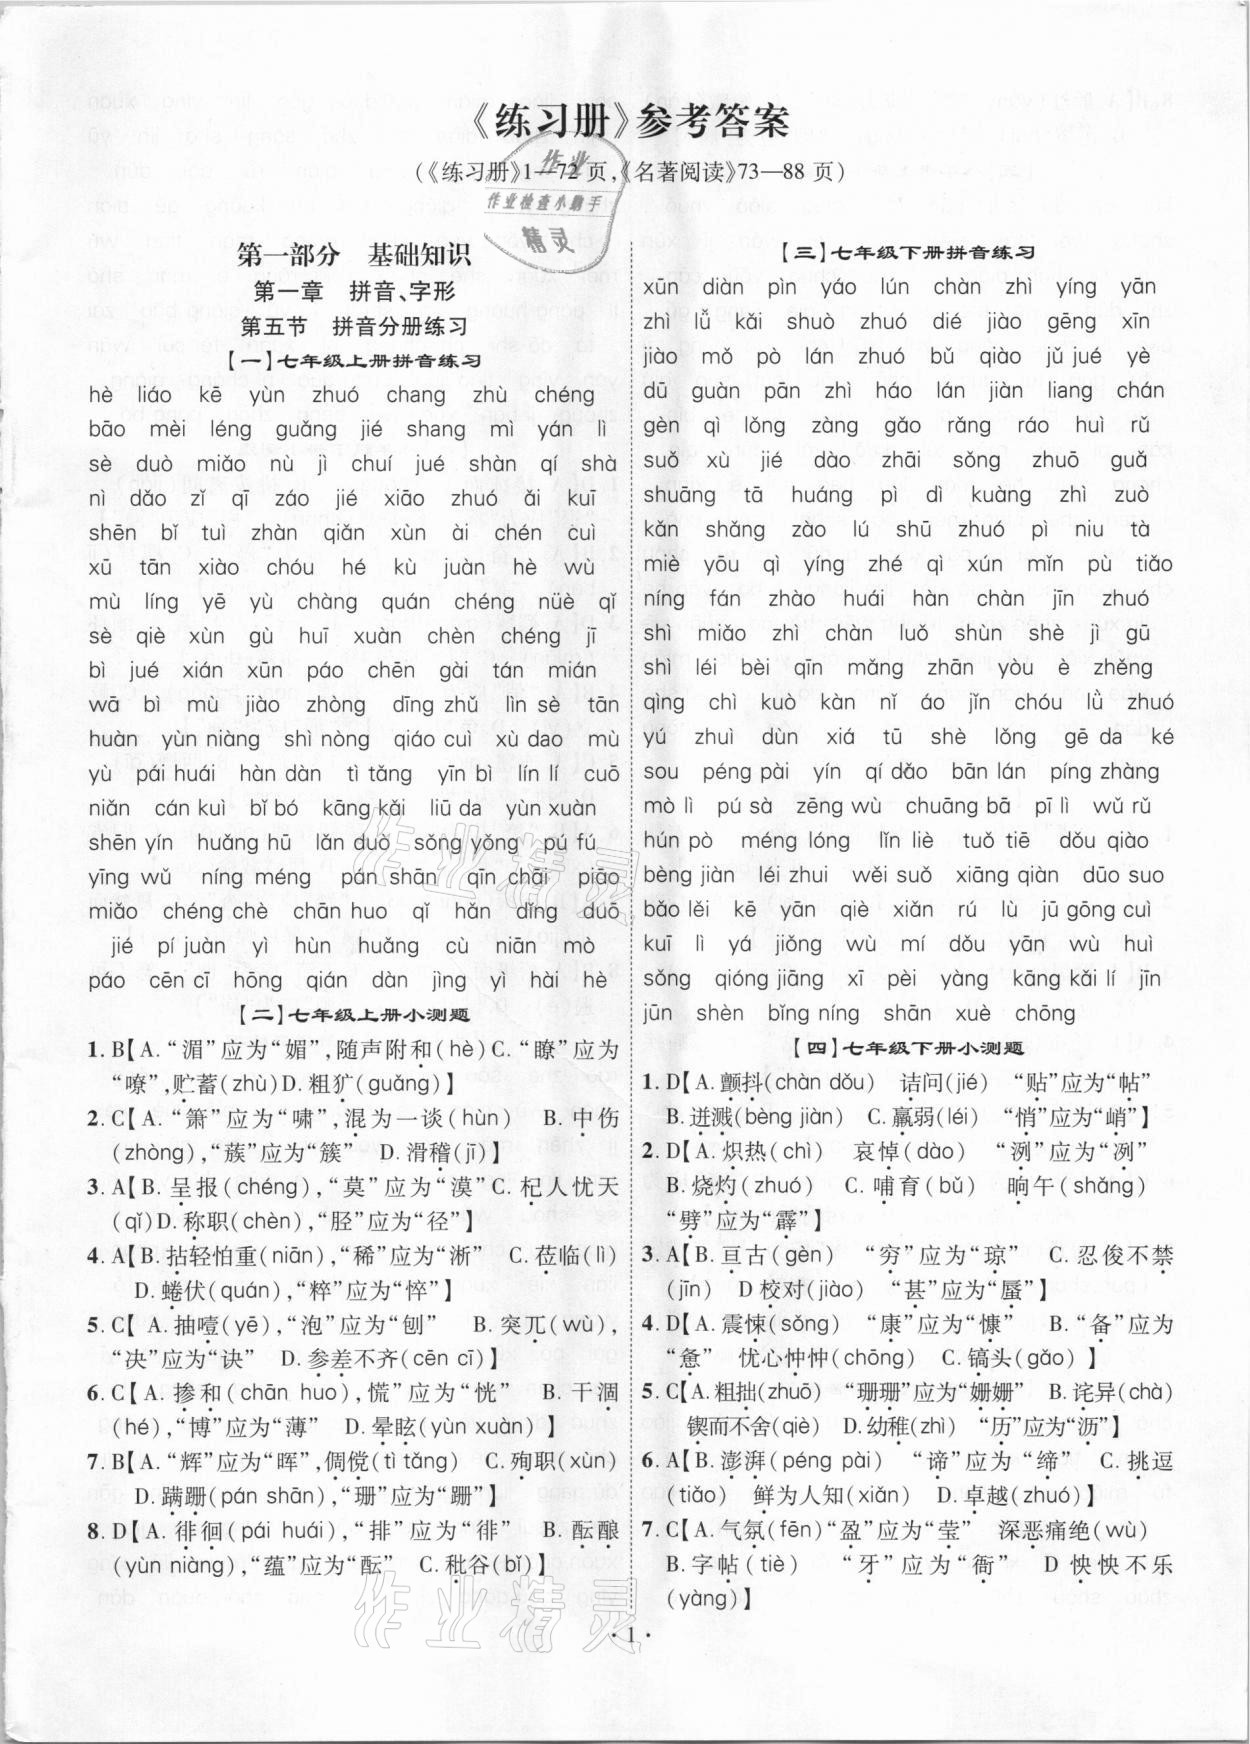 《练习册》参考答案
(《练习册》1—72页,《名著阅读》73—88页)
作业
作业检查小助手
精灵
第一部分 基础知识
第一章 拼音、字形
第五节 拼音分册练习
【一】七年级上册拼音练习
hè liáo kē yùn zhuó chang zhù chéng
bāo mèi léng guǎng jié shang mì yán lì
sè duò miǎo nù jì chuí jué shàn qí shà
nì dǎo zǐ qī záo jié xiāo zhuó ǎi kuī
shēn bǐ tuì zhàn qiǎn xùn ài chén cuì
xū tān xiào chóu hé kù juàn hè wù
mù líng yē yù chàng quán chéng nüè qǐ
sè qiè xùn gù huī xuàn chèn chéng jī
bì jué xián xūn páo chēn gài tán mián
wā bì mù jiào zhòng dīng zhǔ lìn sè tān
huàn yùn niàng shì nòng qiáo cuì xù dao mù
yù pái huái hàn dàn tì tǎng yīn bì lín lí cuō
niǎn cán kuì bǐ bó kāng kǎi liū da yùn xuàn
shēn yín huǎng hū lǎn duò sǒng yǒng pú fú
yīng wǔ níng méng pán shān qīn chāi piāo
miǎo chéng chè chān huo qǐ hǎn dǐng duō
jié pí juàn yì hùn huǎng cù niān mò
páo cēn cī hōng qián dàn jìng yì hài hè
【二】七年级上册小测题
1. B【A. “湄”应为“媚”,随声附和(hè)C. “瞭”应为
“嘹”,贮蓄(zhù)D. 粗犷(guǎng)】
2. C【A. “箫”应为“啸”,混为一谈(hùn) B. 中伤
(zhòng),“蔟”应为“簇” D. 滑稽(jī)】
3. A【B. 呈报(chéng),“莫”应为“漠”C. 杞人忧天
(qǐ)D. 称职(chèn),“胫”应为“径”】
4. A【B. 拈轻怕重(niān),“稀”应为“淅” C. 莅临(lì)
D. 蜷伏(quán),“粹”应为“悴”】
5. C【 A. 抽噎(yē),“泡”应为“刨” B. 突兀(wù),
“决”应为“诀” D. 参差不齐(cēn cī)】
6. C【A. 掺和(chān huo),慌”应为“恍” B. 干涸
(hé),“博”应为“薄” D. 晕眩(yùn xuàn)】
7. B【A. “辉”应为“晖”,倜傥(tì tǎng) C. 殉职(xùn)
D. 蹒跚(pán shān),“珊”应为“跚”】
8. D【A. 徘徊(pái huái),“排”应为“徘” B. 酝酿
(yùn niàng),“蕴”应为“酝” C. 秕谷(bǐ)】
【三】七年级下册拼音练习
xūn diàn pìn yáo lún chàn zhì yíng yān
zhì lǚ kǎi shuò zhuó dié jiào gēng xīn
jiào mǒ pò lán zhuó bǔ qiào jǔ jué yè
dū guàn pān zhì háo lán jiàn liang chán
gèn qì lǒng zàng gǎo rǎng ráo huì rǔ
suǒ xù jié dào zhāi sǒng zhuō guǎ
shuāng tā huáng pì dì kuàng zhì zuò
kǎn shǎng zào lú shū zhuó pì niu tà
miè yōu qì yíng zhé qì xún mǐn pù tiǎo
níng fán zhào huái hàn chàn jīn zhuó
shì miǎo zhì chàn luǒ shùn shè jì gū
shì léi bèi qīn mǎng zhān yòu è zhěng
qìng chì kuò kàn nǐ áo jǐn chóu lǚ zhuó
yú zhuì dùn xiá tū shè lǒng gē da ké
sou péng pài yín qí dǎo bān lán píng zhàng
mò lì pú sà zēng wù chuāng bā pī lì wǔ rǔ
hún pò méng lóng lǐn liè tuǒ tiē dǒu qiào
bèng jiàn léi zhui wěi suǒ xiāng qiàn duō suo
bǎo lěi kē yān qiè xiǎn rú lù jū gōng cuì
kuī lì yá jiǒng wù mí dǒu yān wù huì
sǒng qióng jiāng xī pèi yàng kāng kǎi lí jīn
jūn shèn bǐng níng shān xuè chōng
【四】七年级下册小测题
1. D【A. 颤抖(chàn dǒu) 诘问(jié) “贴”应为“帖”
B. 迸溅(bèng jiàn) C. 羸弱(léi) “悄”应为“峭”】
2. D【A. 炽热(chì) 哀悼(dào) “洌”应为“冽”
B. 烧灼(zhuó) C. 哺育(bǔ) 晌午(shǎng)
“劈”应为“霹”】
3. A【B. 亘古(gèn) “穷”应为“琼” C. 忍俊不禁
(jīn) D 校对(jiào) “甚”应为“蜃”】
4. D【A. 震悚(sǒng) “康”应为“慷” B. “备”应为
“惫” 忧心忡忡(chōng) C. 镐头(gǎo) 】
5. C【A. 粗拙(zhuō) “珊珊”应为“姗姗” B. 诧异(chà)
锲而不舍(qiè) D. 幼稚(zhì) “历”应为“沥”】
6. A【B. 澎湃(péng pài) “谛”应为“缔” C. 挑逗
(tiǎo) 鲜为人知(xiǎn) D. 卓越(zhuó)】
7. C【A. 气氛(fēn)“盈”应为“莹” 深恶痛绝(wù)
B. 字帖(tiè) “牙”应为“衙” D 怏怏不乐
(yàng)】
作业精灵
作业精灵
· 1 ·